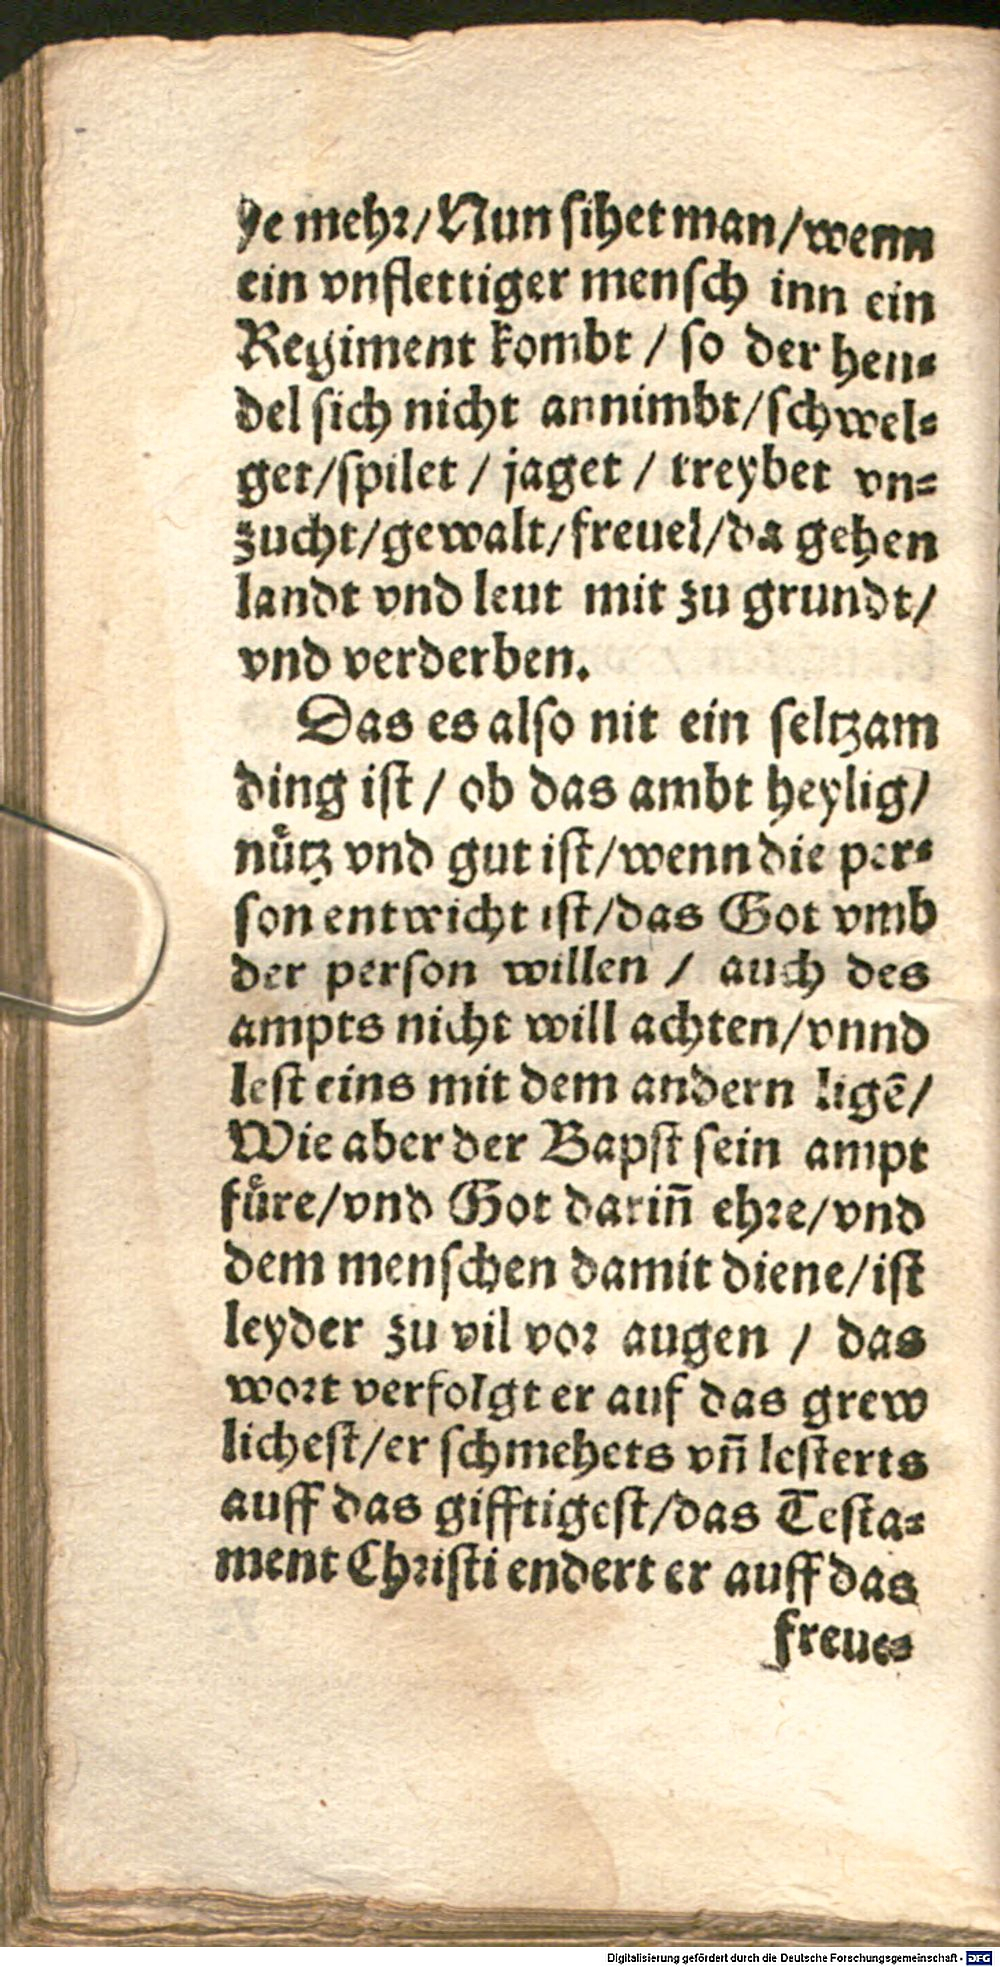 ye mehr/Nun sihet man/wenn
ein vnflettiger mensch inn ein
Regiment kombt / so der hen⸗
del sich nicht annimbt/schwel⸗
get/spilet / jaget / treybet vn⸗
zucht/gewalt/freuel/da gehen
landt vnd leut mit zu grundt/
vnd verderben.
Das es also nit ein seltzam
ding ist / ob das ambt heylig/
nuͤtz vnd gut ist/wenn die per⸗
son entwicht ist/das Got vmb
der person willen / auch des
ampts nicht will achten/vnnd
lest eins mit dem andern ligē/
Wie aber der Bapst sein ampt
fuͤre/vnd Got darin̄ ehre/vnd
dem menschen damit diene/ist
leyder zu vil vor augen / das
wort verfolgt er auf das grew
lichest/er schmehets vn̄ lesterts
auff das gifftigest/das Testa⸗
ment Christi endert er auff das
freue⸗
Digitalisierung gefördert durch die Deutsche Forschungsgemeinschaft - DFG